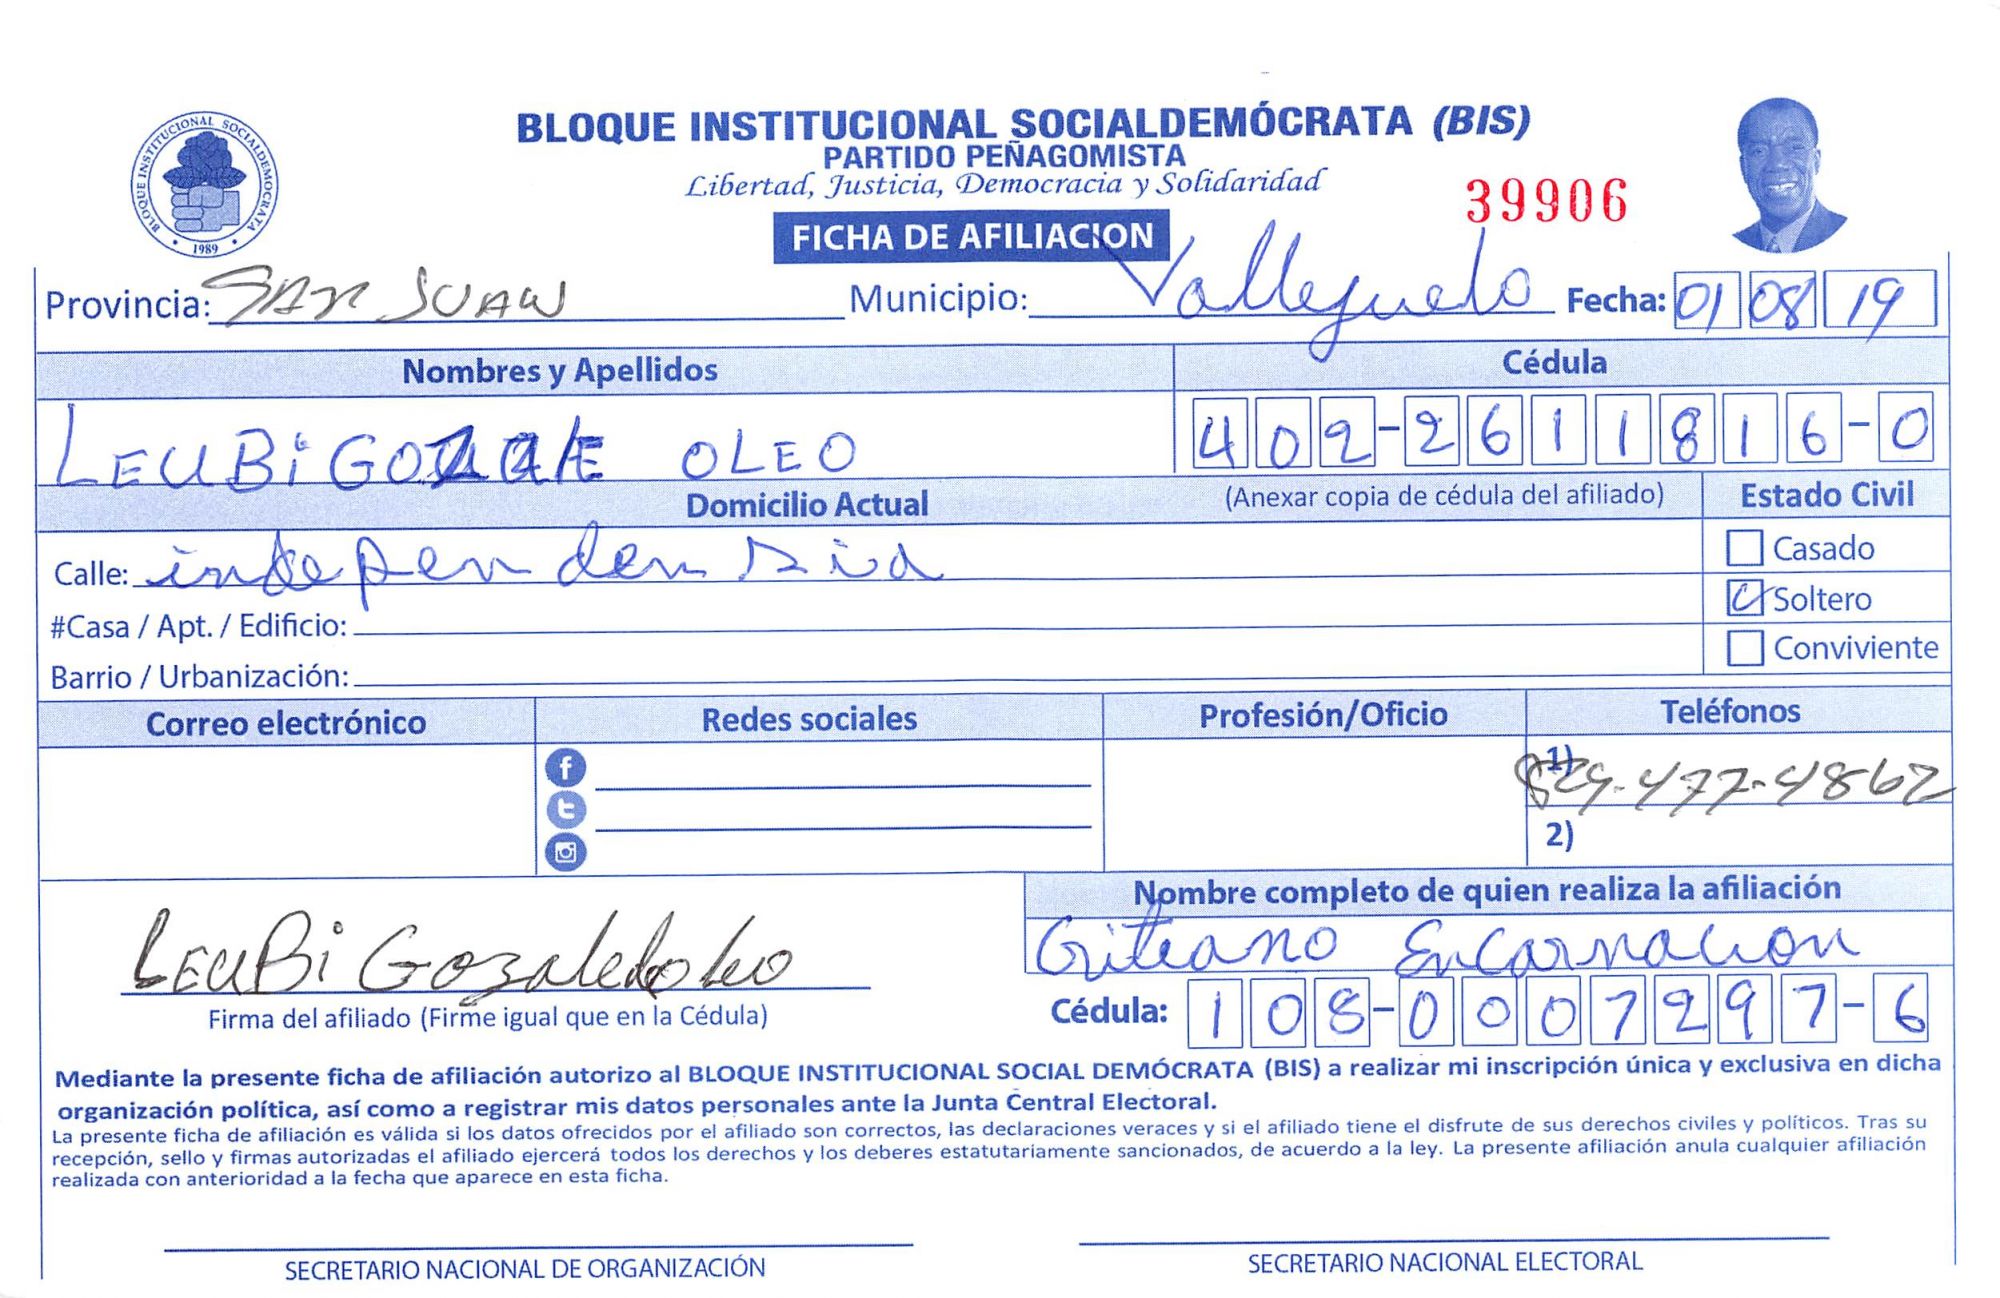 BLOQUE INSTITUCIONAL SOCIALDEMÓCRATA (BIS)
PARTIDO PEÑAGOMISTA
Libertad, Justicia, Democracia y Solidaridad
BLOQUE INSTITUCIONAL SOCIALDEMOCRATA
1989
39906
FICHA DE AFILIACION
Provincia: SAN JUAN Municipio: Vallejuelo Fecha: 01 08 19
Nombres y Apellidos Cédula
LEUBi GOZALE OLEO 402-2611816-0
Domicilio Actual (Anexar copia de cédula del afiliado) Estado Civil
Calle: independensia Casado
#Casa / Apt. / Edificio: Soltero
Barrio / Urbanización: Conviviente
Correo electrónico Redes sociales Profesión/Oficio Teléfonos
1) 829-477-4862
2)
Nombre completo de quien realiza la afiliación
LEUBi Gozaledeoleo Encarnacion
Firma del afiliado (Firme igual que en la Cédula) Cédula: 108-0007297-6
Mediante la presente ficha de afiliación autorizo al BLOQUE INSTITUCIONAL SOCIAL DEMÓCRATA (BIS) a realizar mi inscripción única y exclusiva en dicha
organización política, así como a registrar mis datos personales ante la Junta Central Electoral.
La presente ficha de afiliación es válida si los datos ofrecidos por el afiliado son correctos, las declaraciones veraces y si el afiliado tiene el disfrute de sus derechos civiles y políticos. Tras su
recepción, sello y firmas autorizadas el afiliado ejercerá todos los derechos y los deberes estatutariamente sancionados, de acuerdo a la ley. La presente afiliación anula cualquier afiliación
realizada con anterioridad a la fecha que aparece en esta ficha.
SECRETARIO NACIONAL DE ORGANIZACIÓN SECRETARIO NACIONAL ELECTORAL